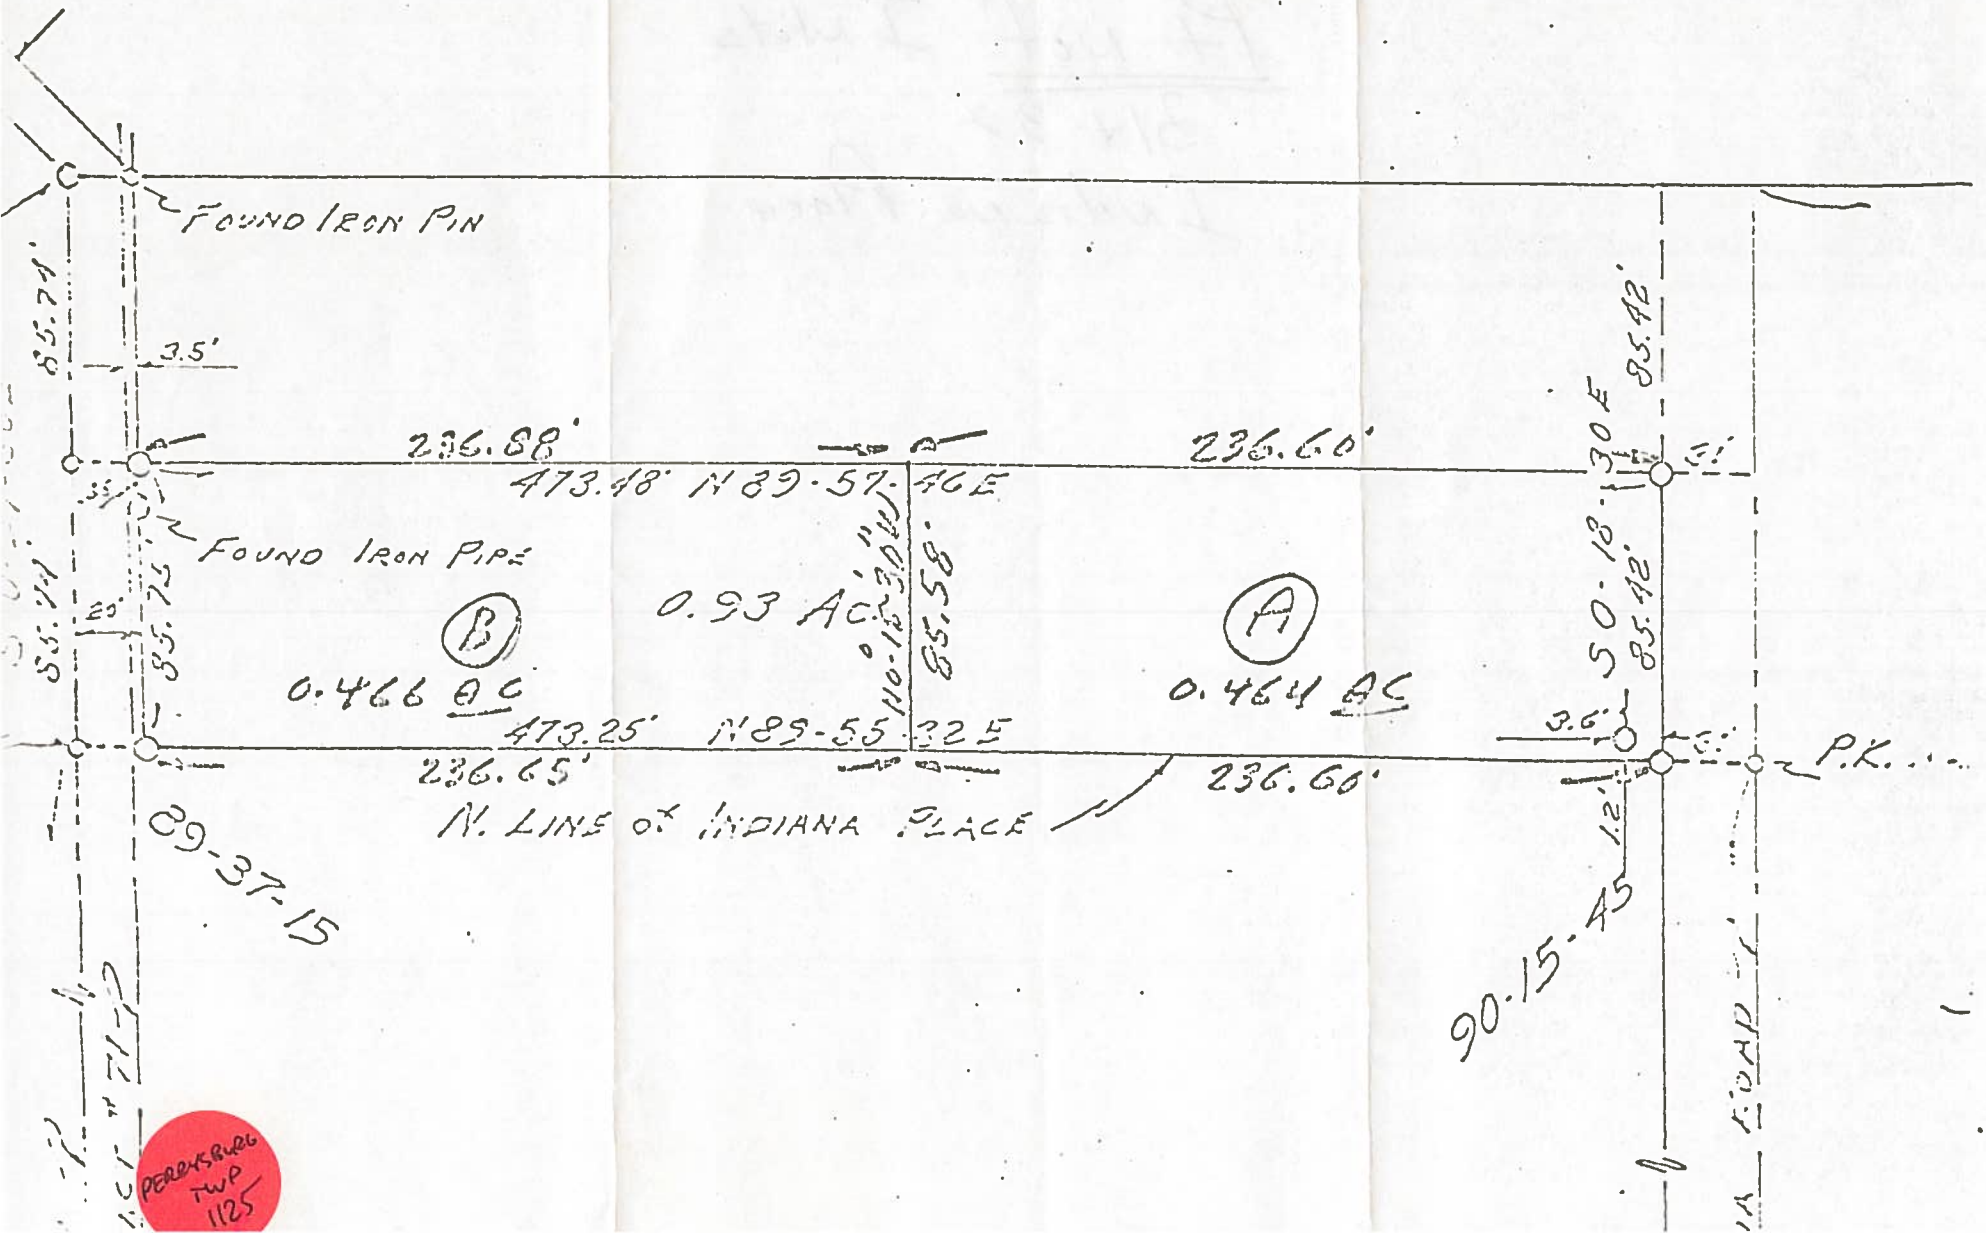 FOUND IRON PIN
85.74'
3.5'
85.42'
236.88'
236.60'
473.48' N 89-57-46E
S0-18-30E
FOUND IRON PIPE
85.74'
85.75'
B
0.93 AC.
N0°-18'-30"W
85.58'
A
85.42'
0.466 AC
0.464 AC
473.25' N89-55-32E
236.65'
236.60'
3.6'
1.2'
P.K.
N. LINE OF INDIANA PLACE
89-37-15
90-15-45
PERRYSBURG
TWP
1125